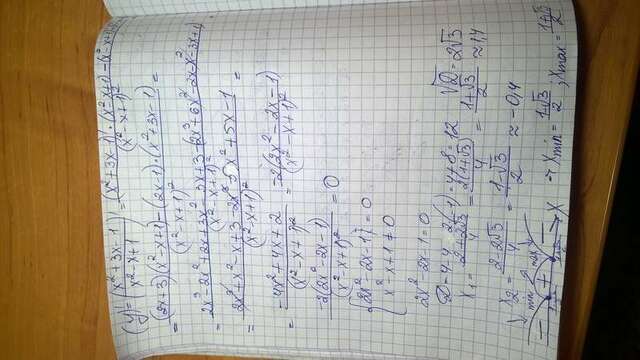 (y)' = ((x²+3x-1)/(x²-x+1))' = ((x²+3x-1)'·(x²-x+1)-(x²-x+1)
/(x²-x+1)²
= ((2x+3)(x²-x+1)-(2x-1)·(x²+3x-1))/(x²-x+1)² =
= (2x³-2x²+2x+3x²-3x+3-(2x³+6x²-2x-x²-3x+1)/(x²-x+1)²
= (2x³+x²-x+3-2x³-5x²+5x-1)/(x²-x+1)² =
= (-4x²+4x+2)/(x²-x+1)² = (-2(2x²-2x-1))/(x²-x+1)²
(-2(2x²-2x-1))/(x²-x+1)² = 0
{ 2x²-2x-1 = 0
x²-x+1 ≠ 0
2x²-2x-1=0
D=4-4·2·(-1)=4+8=12 √D=2√3
x₁ = (2+2√3)/4 = (2(1+√3))/4 = (1+√3)/2 ≈1,4
x₂ = (2-2√3)/4 = (1-√3)/2 ≈ -0,4
min + max - x → Xmin = (1-√3)/2 ; Xmax = (1+√3)/2